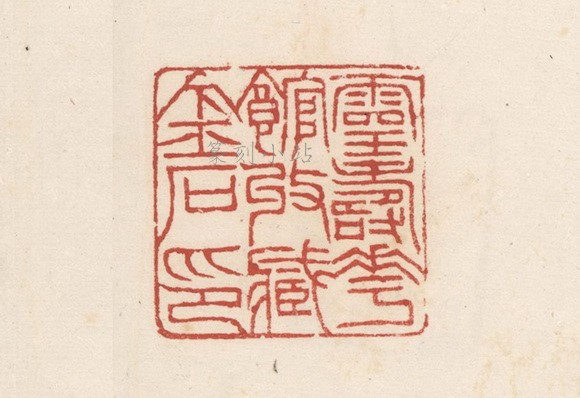 靈壽華
館收藏
金石印
篆刻小站